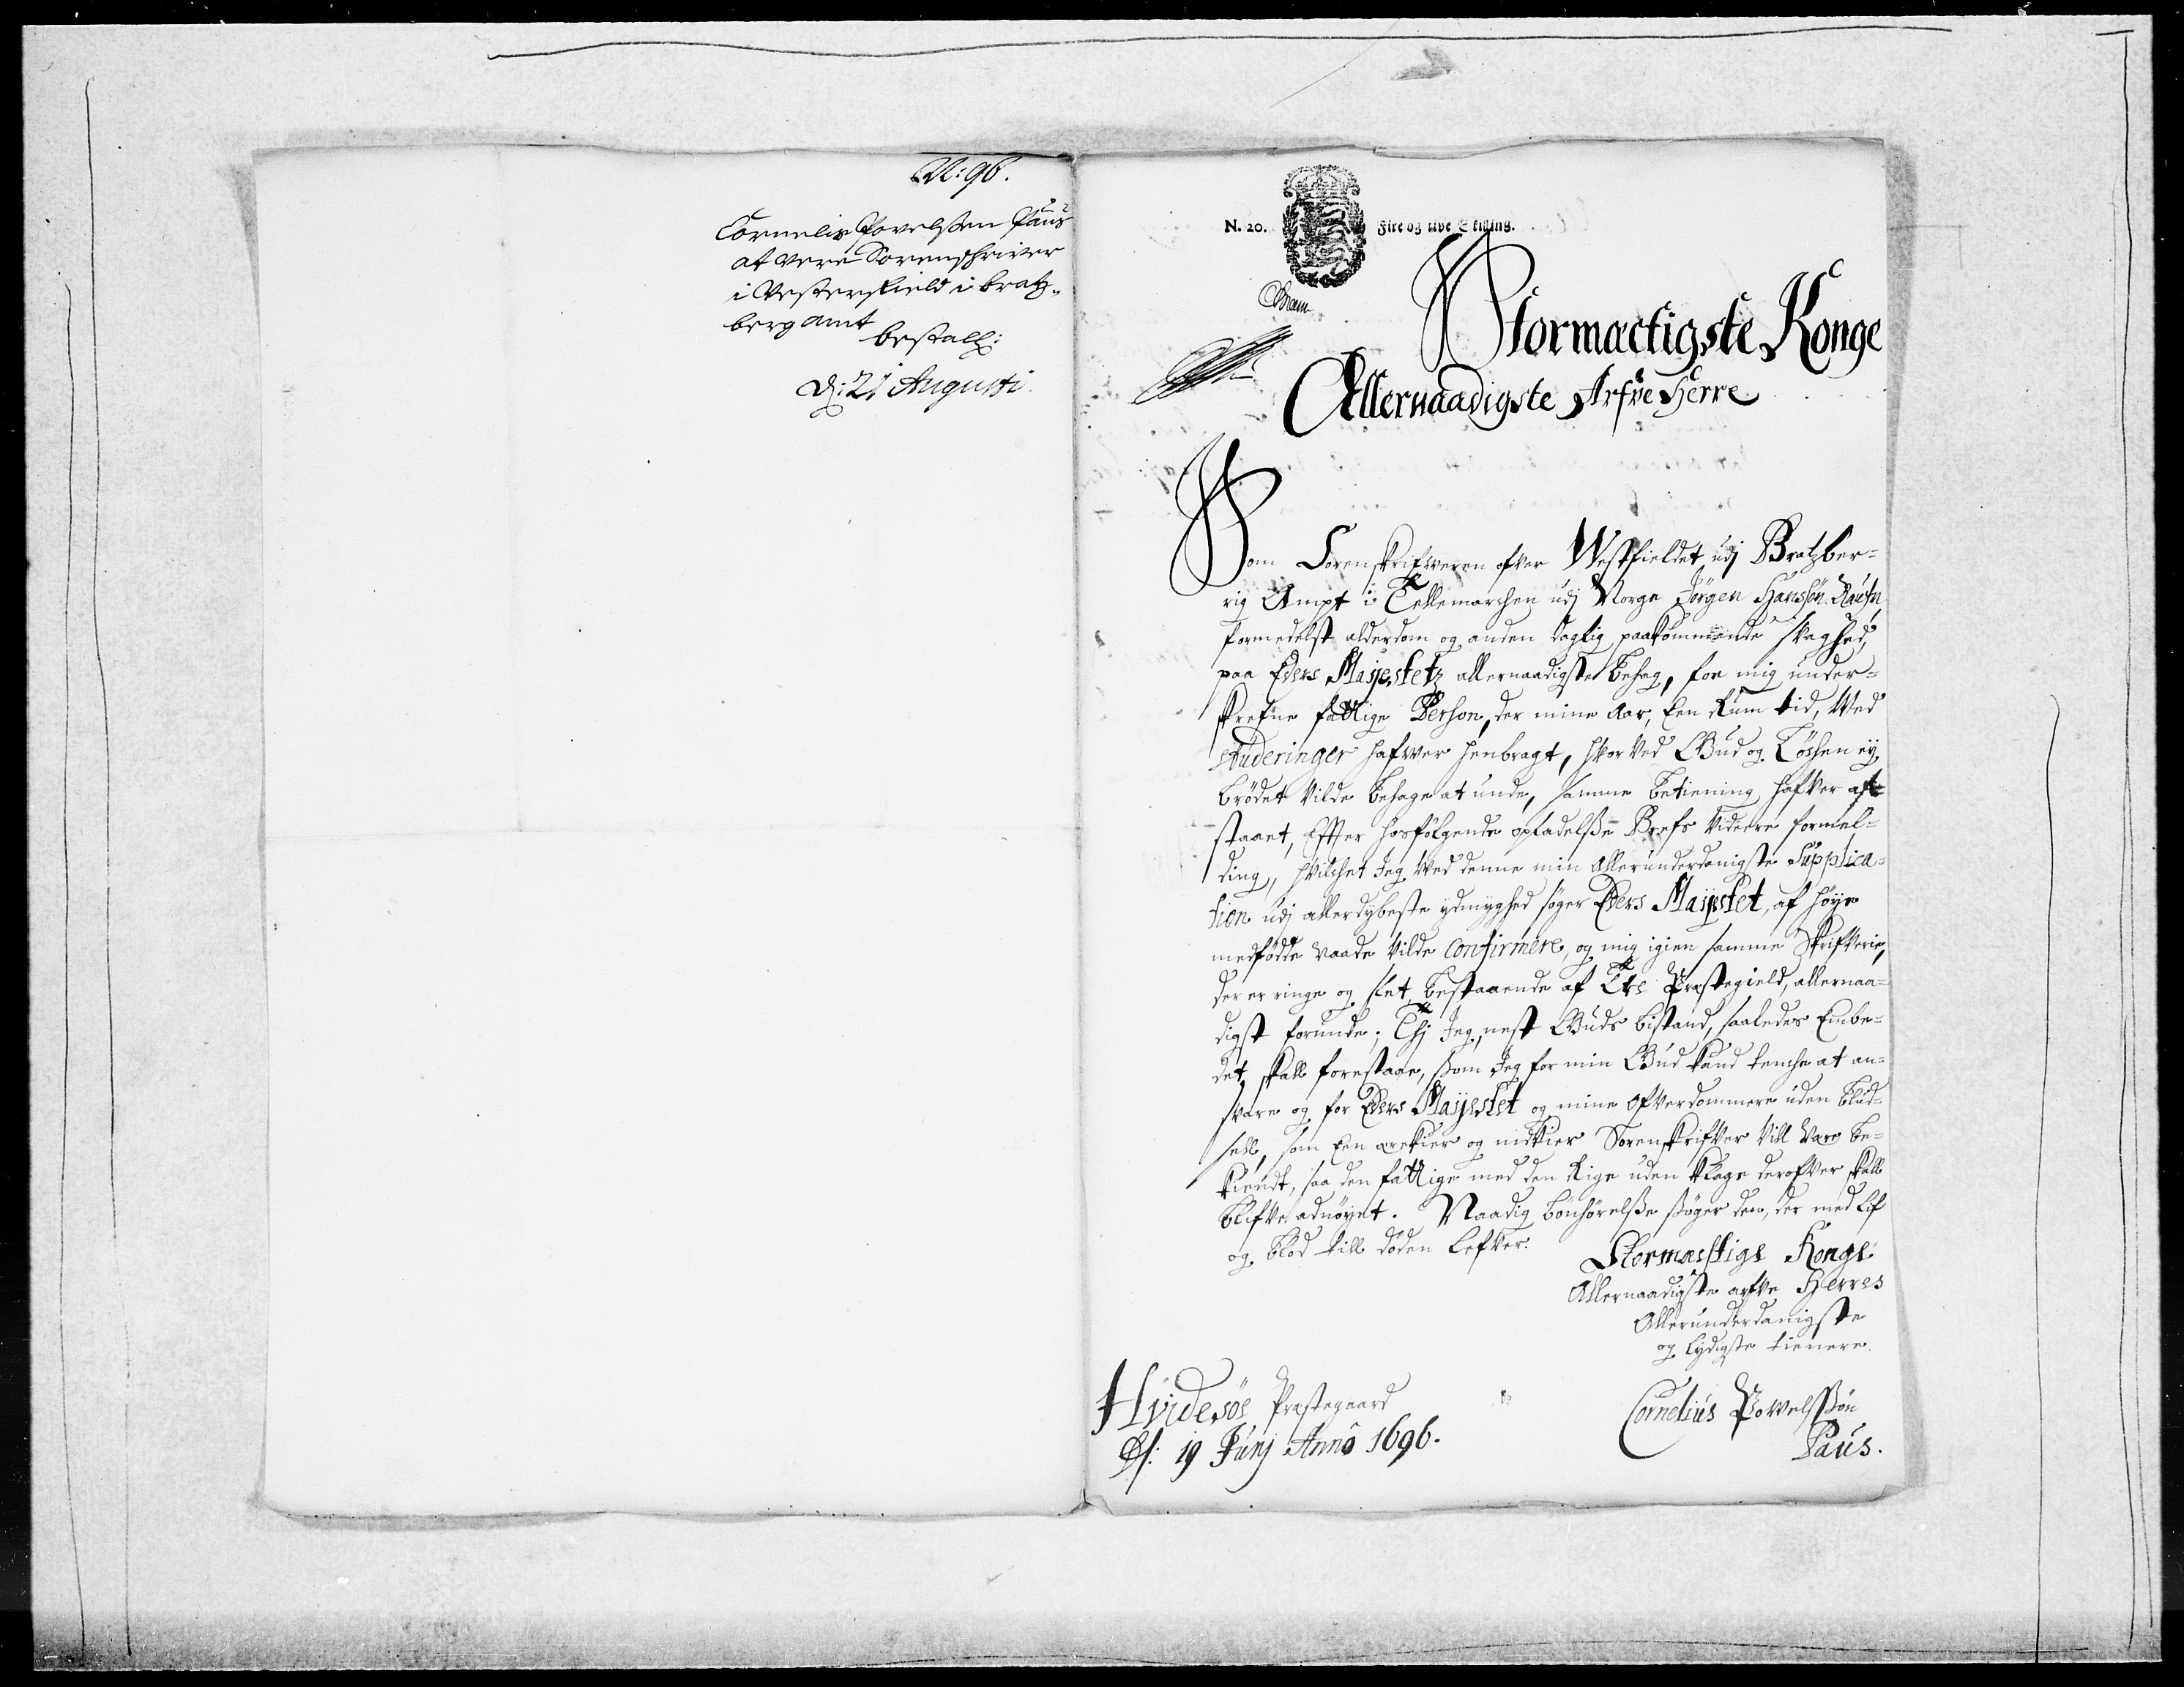 N: 96.
Cornelis Povelsen Paus
at vere Sorenschriver
i Vesterfield i Bratz-
berg amt
bestall:
d: 21 Augusti
N. 20. Fire og tive Skilling.
Stormactigste Konge
Allernaadigste Arfve Herre
Som Sorenskrifveren ofver Westfieldet udj Bratzber-
rig Ampt i Tellemarchen udj Norge Jörgen Hansön
formedelst alderdom og anden daglig paakommende svaghed,
paa Eders Mayestetz allernaadigste behag, for mig under-
skrefne fattige Person, der mine Aar, Een Rum tid, Med
studeringer hafver henbragt, hvor ved Gud og Løchen ey
brödet vilde behage at unde, samme betiening hafver aff-
staaet, Effter hosfölgende opladelße Brefs videre formel-
ding, hvilchet Jeg Med denne min Allerunderdanigste Supplica-
tion udj allerdybeste ydmyghed söger Eders Mayestet, af höye
medfödde naade vilde Confirmere, og mig igien samme Skrifverie,
der er ringe og slet, bestaaende af Præstegield, allernaa-
digst forunde; Thj Jeg, nest Guds bistand, saaledes Embe-
det skall forestaae, som Jeg for min Gud kand tenche at an-
svare og for Eders Mayestet og mine Ofverdommere uden blud-
sell, som Een ærekier og nidkier Sorenskrifver vill være be-
kiendt, saa den fattige med den Rige uden klage derofver skall
blifve adnöyet. Naadig bönhörelße ßöger den, der med Lif
og blod till döden Lefver:
Stormectige Konge
Allernaadigste arfve Herres
Allerunderdanigste
og lydigste tienere.
Hvidesöe Præstegaard
D: 19 Junj Anno 1696.
Cornelius Powelßön
Paus.